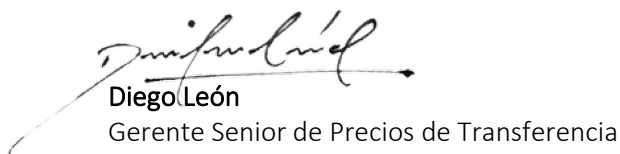 Diego León
Gerente Senior de Precios de Transferencia